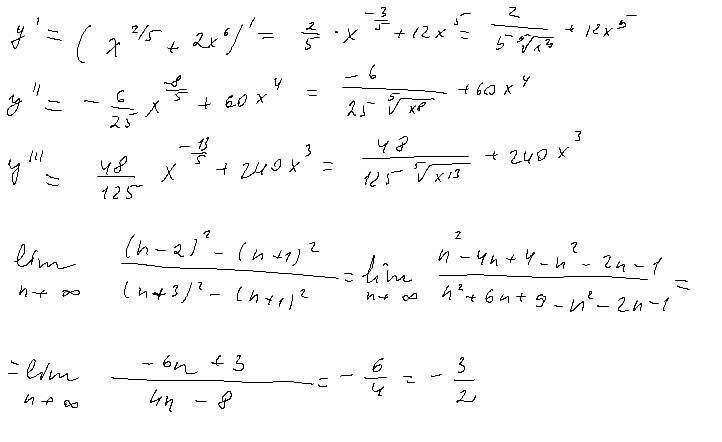 y' = (x^{2/5} + 2x^6)' = \frac{2}{5} · x^{-\frac{3}{5}} + 12x^5 = \frac{2}{5\sqrt[5]{x^3}} + 12x^5
y'' = -\frac{6}{25} x^{-\frac{8}{5}} + 60x^4 = \frac{-6}{25\sqrt[5]{x^8}} + 60x^4
y''' = \frac{48}{125} x^{-\frac{13}{5}} + 240x^3 = \frac{48}{125\sqrt[5]{x^{13}}} + 240x^3
lim_{n→∞} \frac{(n-2)^2 - (n+1)^2}{(n+3)^2 - (n+1)^2} = lim_{n→∞} \frac{n^2 - 4n + 4 - n^2 - 2n - 1}{n^2 + 6n + 9 - n^2 - 2n - 1} =
= lim_{n→∞} \frac{-6n + 3}{4n - 8} = -\frac{6}{4} = -\frac{3}{2}